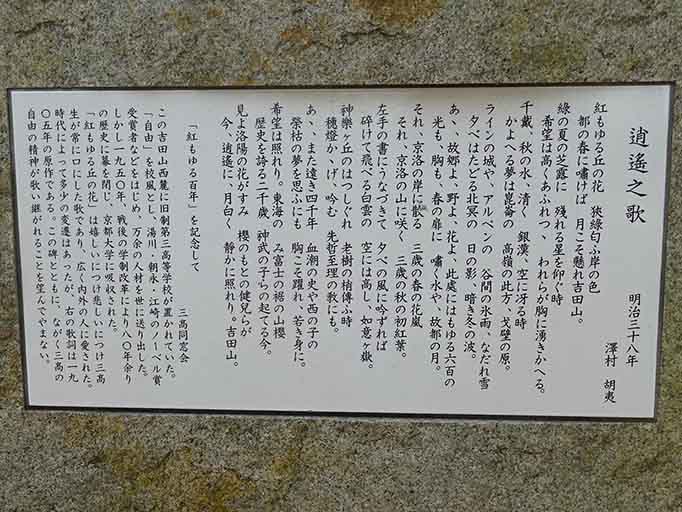 逍遙之歌
明治三十八年
澤村 胡夷
紅もゆる丘の花 狹綠匂ふ岸の色
都の春に嘯けば 月こそ懸れ吉田山。
綠の夏の芝露に 殘れる星を仰ぐ時
希望は高くあふれつゝ われらが胸に湧きかへる。
千載、秋の水、清く 銀漢、空に冴る時
かよへる夢は崑崙の 高嶺の此方、戈壁の原。
ラインの城や、アルペンの 谷間の氷雨、なだれ雪
夕べはたどる北冥の 日の影、暗き冬の波。
あゝ、故郷よ、野よ、花よ、此處にはもゆる六百の
光も、胸も、春の扉に 嘯く水や、故都の月。
それ、京洛の岸に散る 三歳の春の花嵐
それ、京洛の山に咲く 三歳の秋の初紅葉。
左手の書にうなづきて 夕べの風に吟ずれば
砕けて飛べる白雲の 空には高し、如意ヶ嶽。
神樂ヶ丘のはつしぐれ 老樹の梢傳ふ時
穂燈かゝげ、吟む 先哲至理の教にも。
あゝ、また遠き四千年 血潮の史や西の子の
榮枯の夢を思ふにも 胸こそ躍れ、若き身に。
希望は照れり。東海の み富士の裾の山櫻
歴史を誇る二千歳 神武の子らの起てる今。
見よ洛陽の花がすみ 櫻のもとの健兒らが
今、逍遙に、月白く 靜かに照れり。吉田山。
三高同窓会
「紅もゆる百年」を記念して
この吉田山西麓に旧制第三高等学校が置かれていた。
「自由」を校風とし、湯川・朝永・江崎のノーベル賞
受賞者などをはじめ、万余の人材を世に送り出した。
しかし一九五〇年、戦後の学制改革により八〇年余り
の歴史に幕を閉じ、京都大学に吸収された。
「紅もゆる丘の花」は嬉しいにつけ悲しいにつけ三高
生が常に口にした歌であり、広く内外の人に愛された。
時代によって多少の変遷はあったが、右の歌詞は一九
〇五年の原作である。この碑とともに、ながく三高の
自由の精神が歌い継がれることを望んでやまない。